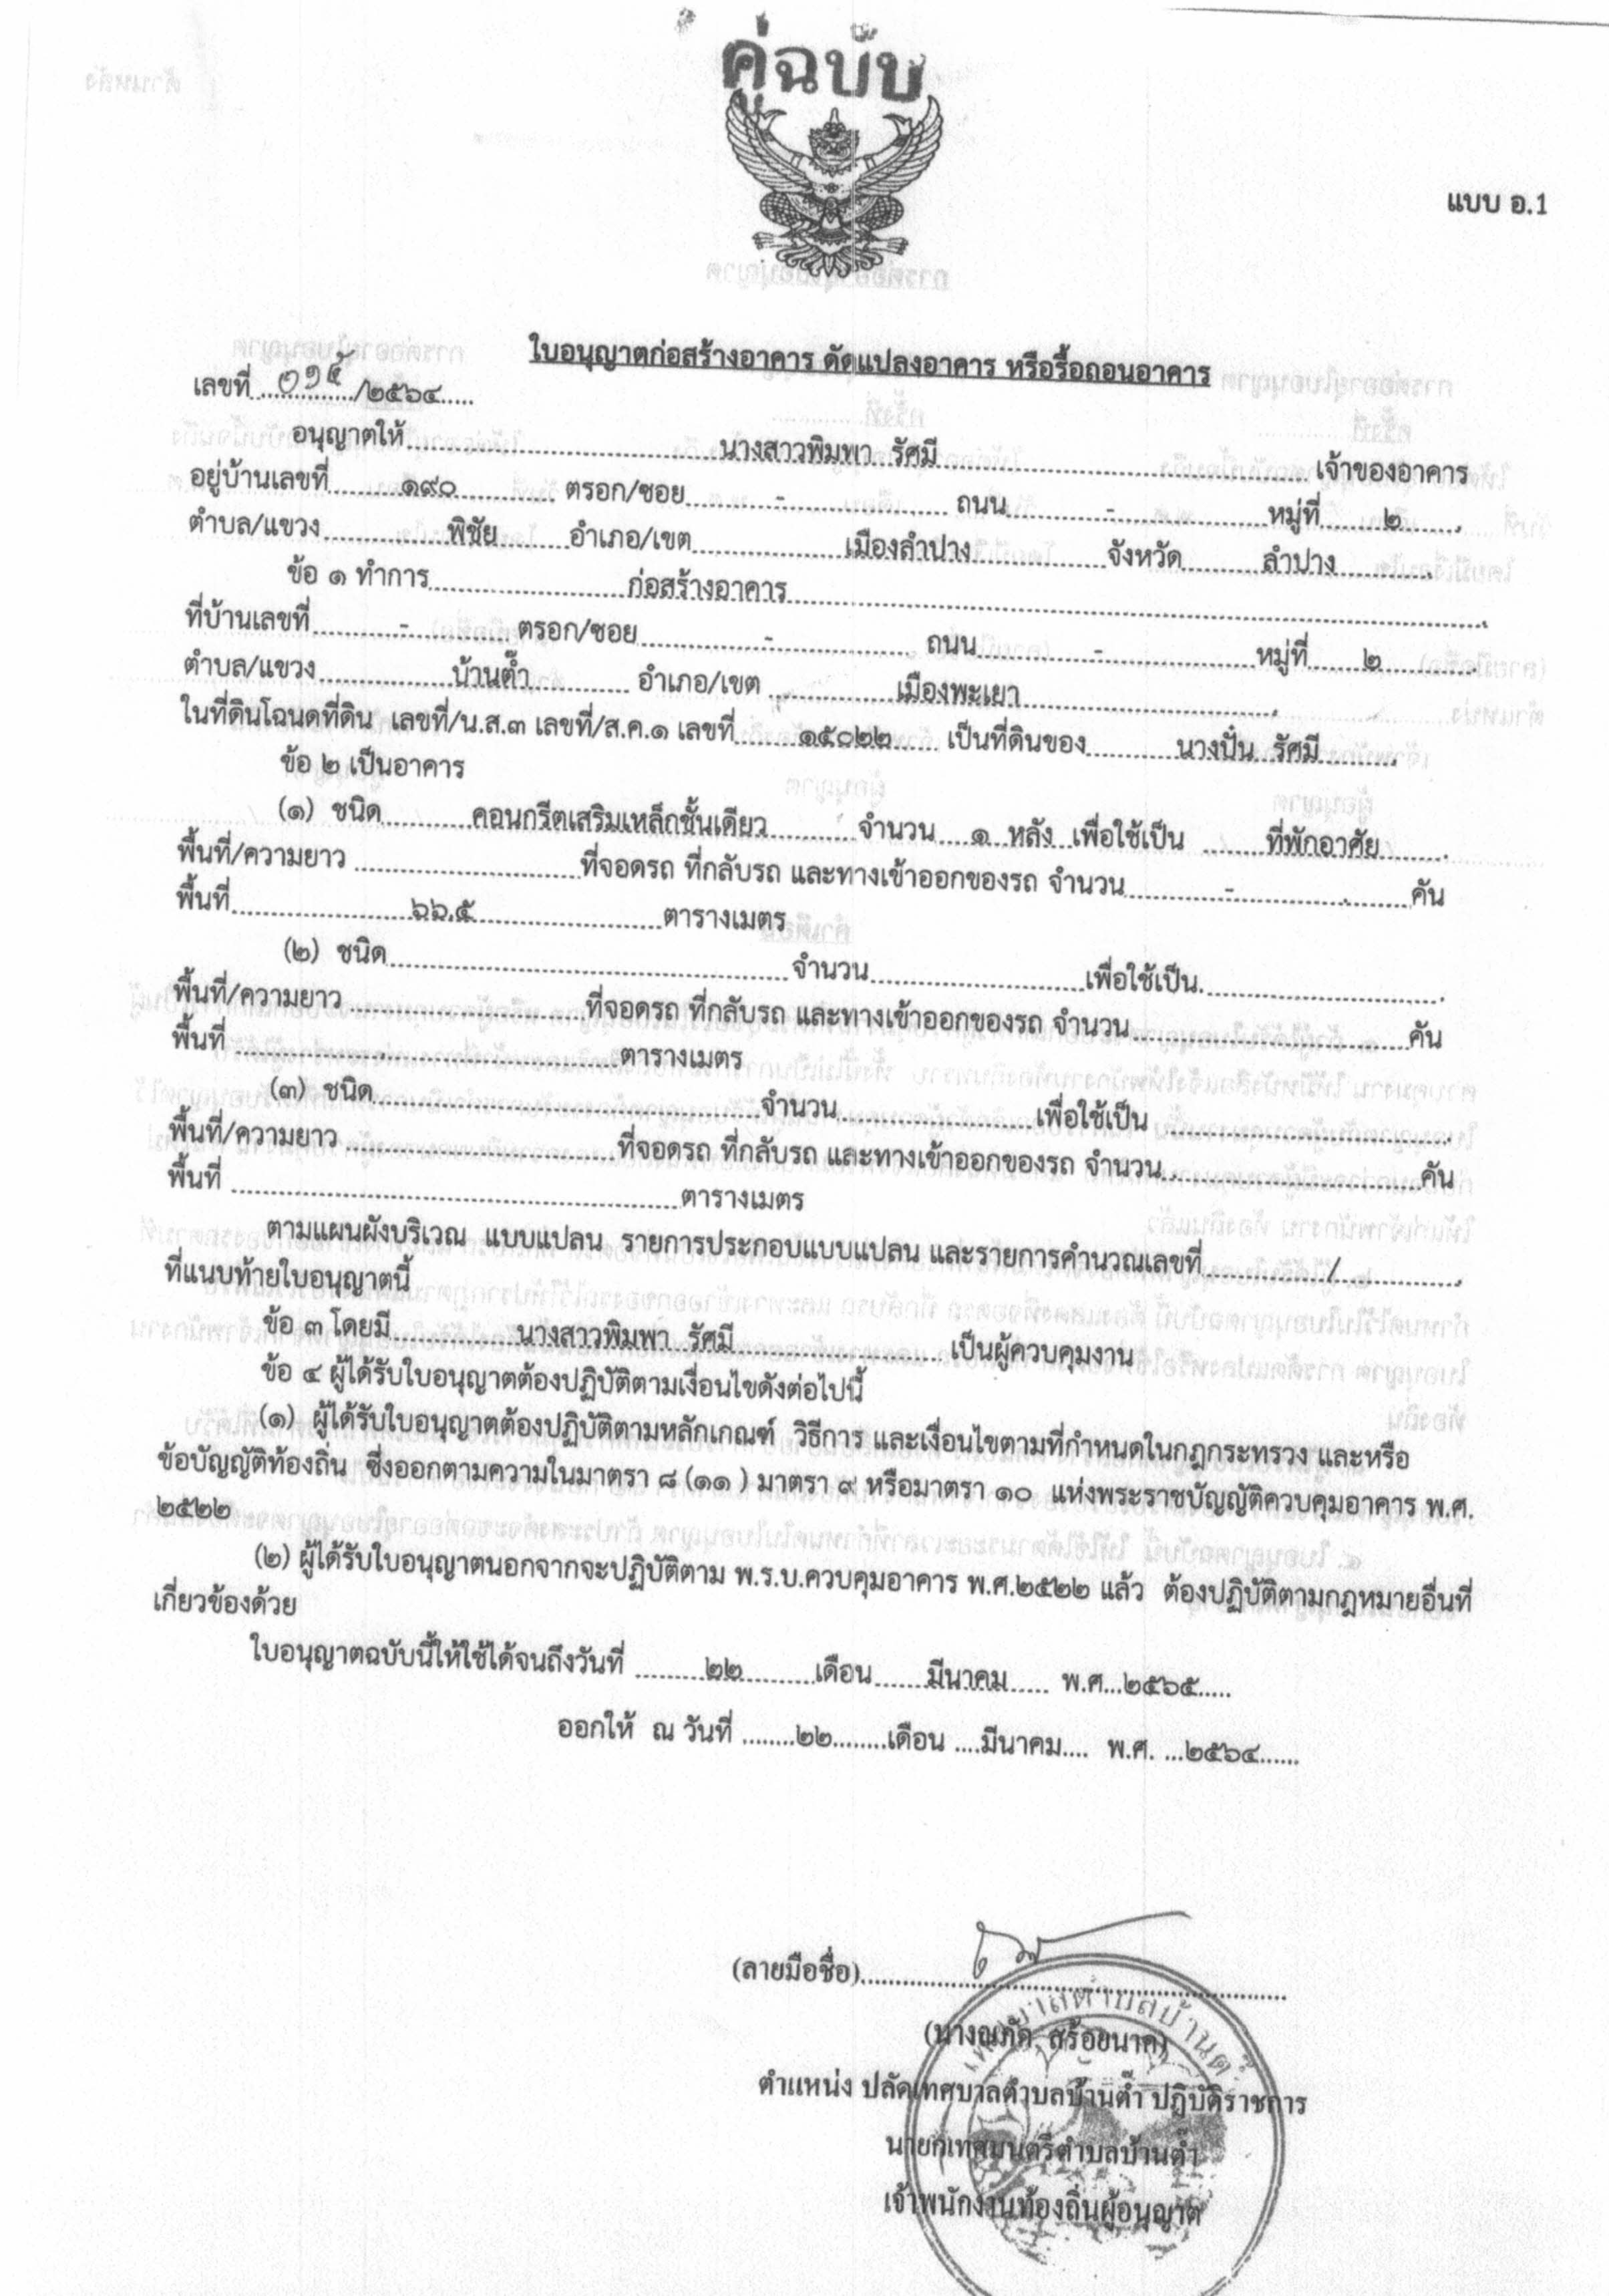 คู่ฉบับ
แบบ อ.1
ใบอนุญาตก่อสร้างอาคาร ดัดแปลงอาคาร หรือรื้อถอนอาคาร
เลขที่ ๐๑๕/๒๕๖๔
อนุญาตให้ นางสาวพิมพา รัศมี เจ้าของอาคาร
อยู่บ้านเลขที่ ๑๙๐ ตรอก/ซอย - ถนน - หมู่ที่ ๒
ตำบล/แขวง พิชัย อำเภอ/เขต เมืองลำปาง จังหวัด ลำปาง
ข้อ ๑ ทำการ ก่อสร้างอาคาร
ที่บ้านเลขที่ - ตรอก/ซอย - ถนน - หมู่ที่ ๒
ตำบล/แขวง บ้านต๊ำ อำเภอ/เขต เมืองพะเยา
ในที่ดินโฉนดที่ดิน เลขที่/น.ส.๓ เลขที่/ส.ค.๑ เลขที่ ๑๕๐๒๒ เป็นที่ดินของ นางปั๋น รัศมี
ข้อ ๒ เป็นอาคาร
(๑) ชนิด คอนกรีตเสริมเหล็กชั้นเดียว จำนวน ๑ หลัง เพื่อใช้เป็น ที่พักอาศัย
พื้นที่/ความยาว ที่จอดรถ ที่กลับรถ และทางเข้าออกของรถ จำนวน - คัน
พื้นที่ ๖๖.๕ ตารางเมตร
(๒) ชนิด จำนวน เพื่อใช้เป็น
พื้นที่/ความยาว ที่จอดรถ ที่กลับรถ และทางเข้าออกของรถ จำนวน คัน
พื้นที่ ตารางเมตร
(๓) ชนิด จำนวน เพื่อใช้เป็น
พื้นที่/ความยาว ที่จอดรถ ที่กลับรถ และทางเข้าออกของรถ จำนวน คัน
พื้นที่ ตารางเมตร
ตามแผนผังบริเวณ แบบแปลน รายการประกอบแบบแปลน และรายการคำนวณเลขที่ /
ที่แนบท้ายใบอนุญาตนี้
ข้อ ๓ โดยมี นางสาวพิมพา รัศมี เป็นผู้ควบคุมงาน
ข้อ ๔ ผู้ได้รับใบอนุญาตต้องปฏิบัติตามเงื่อนไขดังต่อไปนี้
(๑) ผู้ได้รับใบอนุญาตต้องปฏิบัติตามหลักเกณฑ์ วิธีการ และเงื่อนไขตามที่กำหนดในกฎกระทรวง และหรือ
ข้อบัญญัติท้องถิ่น ซึ่งออกตามความในมาตรา ๘ (๑๑ ) มาตรา ๙ หรือมาตรา ๑๐ แห่งพระราชบัญญัติควบคุมอาคาร พ.ศ.
๒๕๒๒
(๒) ผู้ได้รับใบอนุญาตนอกจากจะปฏิบัติตาม พ.ร.บ.ควบคุมอาคาร พ.ศ.๒๕๒๒ แล้ว ต้องปฏิบัติตามกฎหมายอื่นที่
เกี่ยวข้องด้วย
ใบอนุญาตฉบับนี้ให้ใช้ได้จนถึงวันที่ ๒๒ เดือน มีนาคม พ.ศ. ๒๕๖๕
ออกให้ ณ วันที่ ๒๒ เดือน มีนาคม พ.ศ. ๒๕๖๔
(ลายมือชื่อ)
(นางณภัค สร้อยนาค)
ตำแหน่ง ปลัดเทศบาลตำบลบ้านต๊ำ ปฏิบัติราชการ
นายกเทศมนตรีตำบลบ้านต๊ำ
เจ้าพนักงานท้องถิ่นผู้อนุญาต